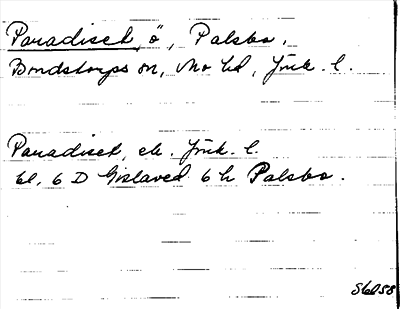 Paradiset, ö, Palsbo.
Bondstorps sn, Mo hd, Jönk. l.
Paradiset, ek. Jönk. l.
bl. 6 D Gislaved 6 h Palsbo.
S6058